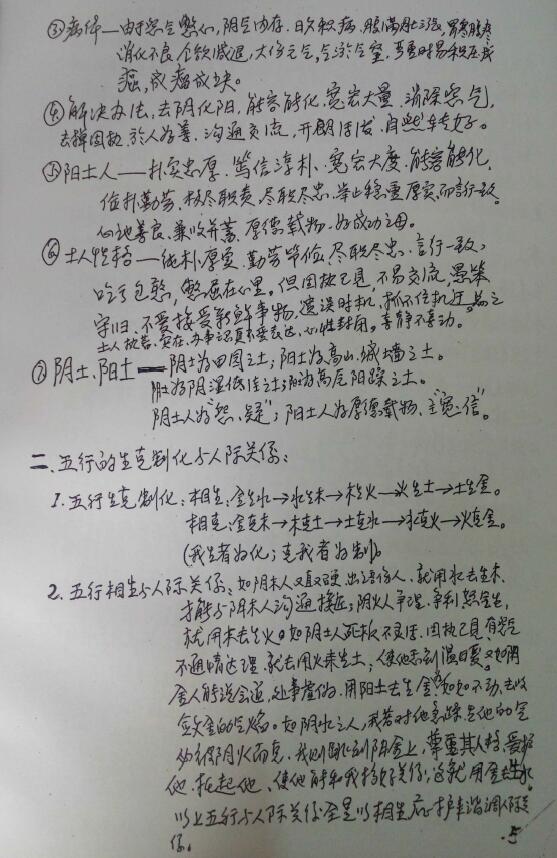 ③病体—由于怨气憋人,阴气内存.日久积病.腹满肚胀,胃寒腹疼
消化不良,食欲减退,大伤元气,气淤气窒.严重时易积压成
癌,成瘤成块。
④解决办法,去阴化阳,能容能化,宽宏大量.消除怨气,
去掉固执.於人为善.沟通交流,开朗活泼.自然转好。
⑤阳土人——朴实忠厚.笃信淳朴、宽宏大度.能容能化,
俭朴勤劳.极尽职责.尽职尽忠.举止稳重厚实,而言行一致。
心地善良、兼收并蓄.厚德载物.好成功之母。
⑥土人性格——纯朴厚重,勤劳节俭,尽职尽忠、言行一致,
吃亏包憨,憋屈在心里。但固执己见,不易交流,愚笨
守旧.不爱接受新鲜事物,遗误时机、抓不住机遇。
土人故苦.实在.办事认真不爱表达.心性封闭。喜静不喜动。
⑦阴土、阳土——阴土为田园之土;阳土为高山、城墙之土。
阴土为阴湿低洼之土;阳土为高亢阳躁之土。
阴土人为“怨、疑”;阳土人为厚德载物、主“宽、信”。
二.五行的生克制化与人际关系:
1.五行生克制化:相生:金生水→水生木→木生火→火生土→土生金。
相克:金克木→木克土→土克水→水克火→火克金。
(我生者为化;克我者为制)。
2.五行相生与人际关系:如阴木人又直又硬.出语伤人.就用水去生木.
才能与阴木人沟通接近;阴火人争理.争利怒生,
就用木去生火。如阴土人死板不灵活.固执己见有怨气
不通晴达理.就去用火来生土,使他感到温暖。又如阴
金人能说会道,处事虚伪.用阳土去生金,如如不动.去收
敛金的气焰。如阴水之人,我若对他急躁是他的气
我则跳到阴金上,尊重其人格.爱护
他.抬起他、使他能和我搞好关系,这就用金去生水。
以上五行与人际关系.全是以相生来维护和谐调人际关
系。
.5